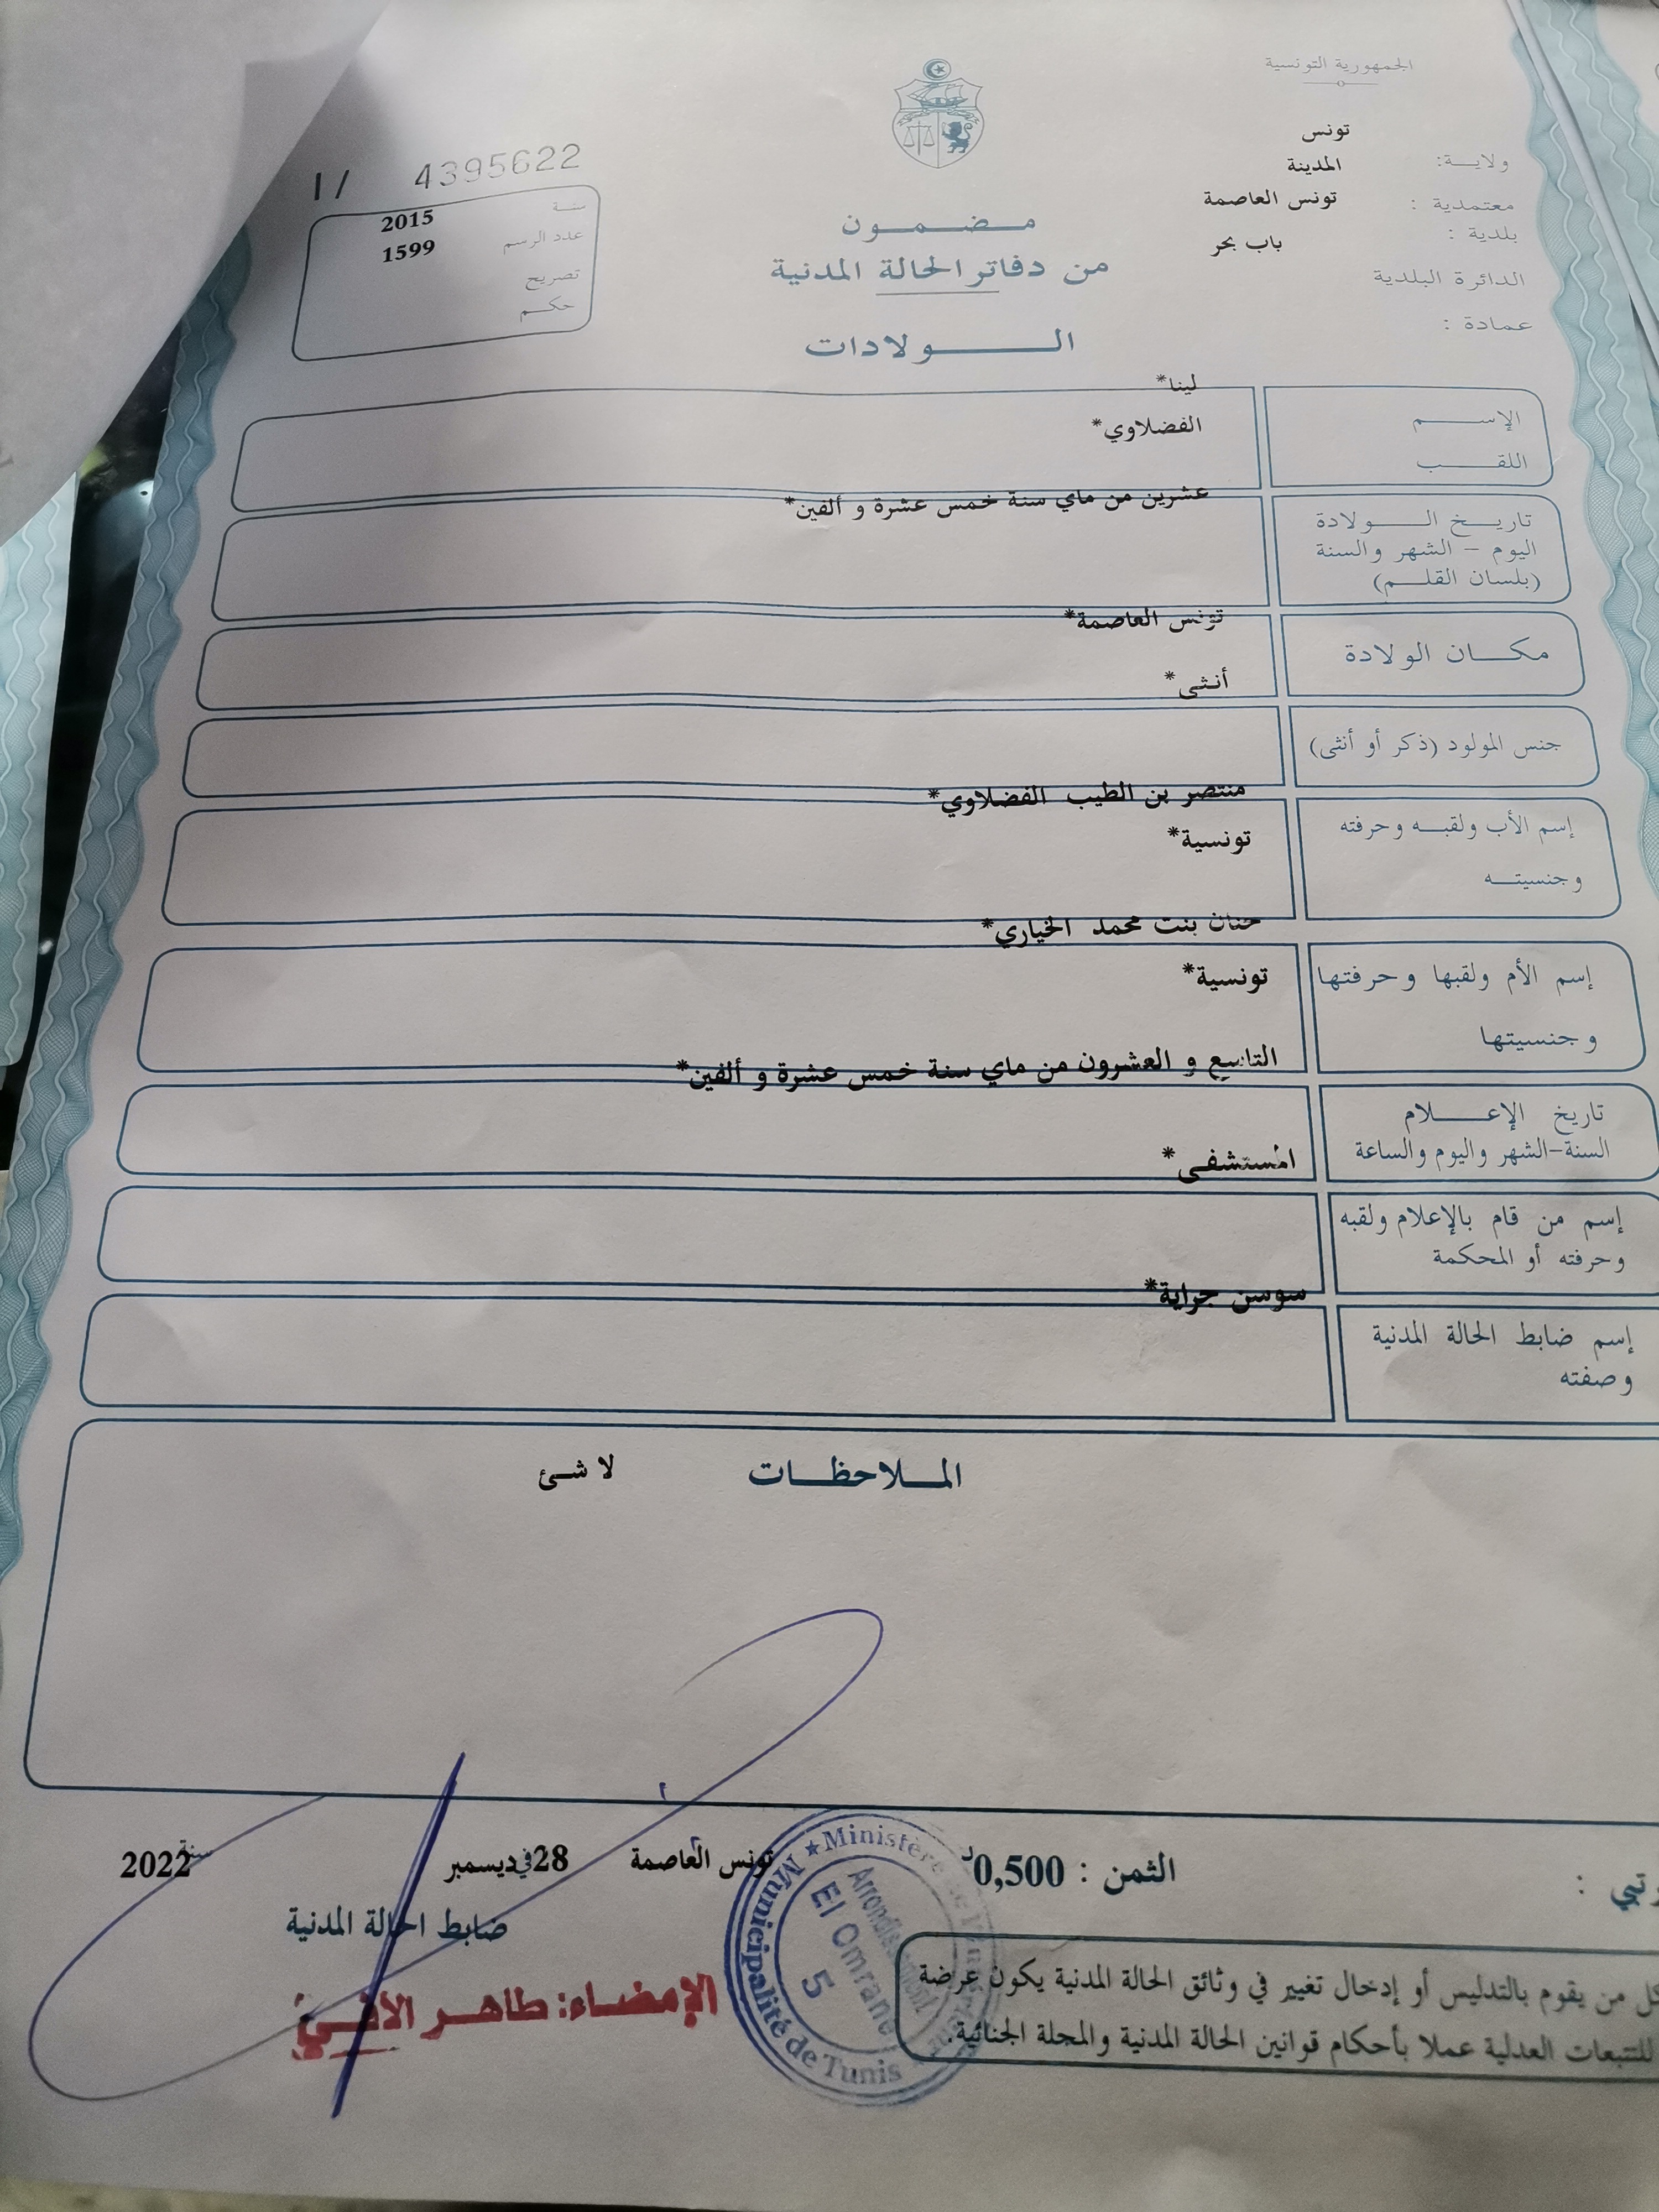 الجمهورية التونسية
ولايـــة: تونس
معتمدية : المدينة
بلدية : تونس العاصمة
الدائرة البلدية باب بحر
عمادة :
مـضـمـون
من دفاتر الحالة المدنية
الـــولادات
1/ 4395622
سنة 2015
عدد الرسم 1599
تصريح
حكم
الإســـم لينا*
اللقـــب الفضلاوي*
تاريـخ الـــولادة عشرين من ماي سنة خمس عشرة و ألفين*
اليوم - الشهر والسنة
(بلسان القلـم)
مكـــان الولادة تونس العاصمة*
جنس المولود (ذكر أو أنثى) أنثى*
إسم الأب ولقبـه وحرفته منتصر بن الطيب الفضلاوي*
وجنسيتــه تونسية*
إسم الأم ولقبها وحرفتها حنان بنت محمد الخياري*
وجنسيتها تونسية*
تاريخ الإعـــلام التاسع و العشرون من ماي سنة خمس عشرة و ألفين*
السنة-الشهر واليوم والساعة
إسم من قام بالإعلام ولقبه المستشفى*
وحرفته أو المحكمة
إسم ضابط الحالة المدنية سوسن جراية*
وصفته
المـلاحظـات لا شئ
الثمن : 0,500د
تونس العاصمة في 28 ديسمبر سنة 2022
ضابط الحالة المدنية
الإمضـاء: طاهـر
★ Ministère
Municipalité de Tunis
Arrondissement
El Omrane
5
كل من يقوم بالتدليس أو إدخال تغيير في وثائق الحالة المدنية يكون عرضة
للتتبعات العدلية عملا بأحكام قوانين الحالة المدنية والمجلة الجنائية.